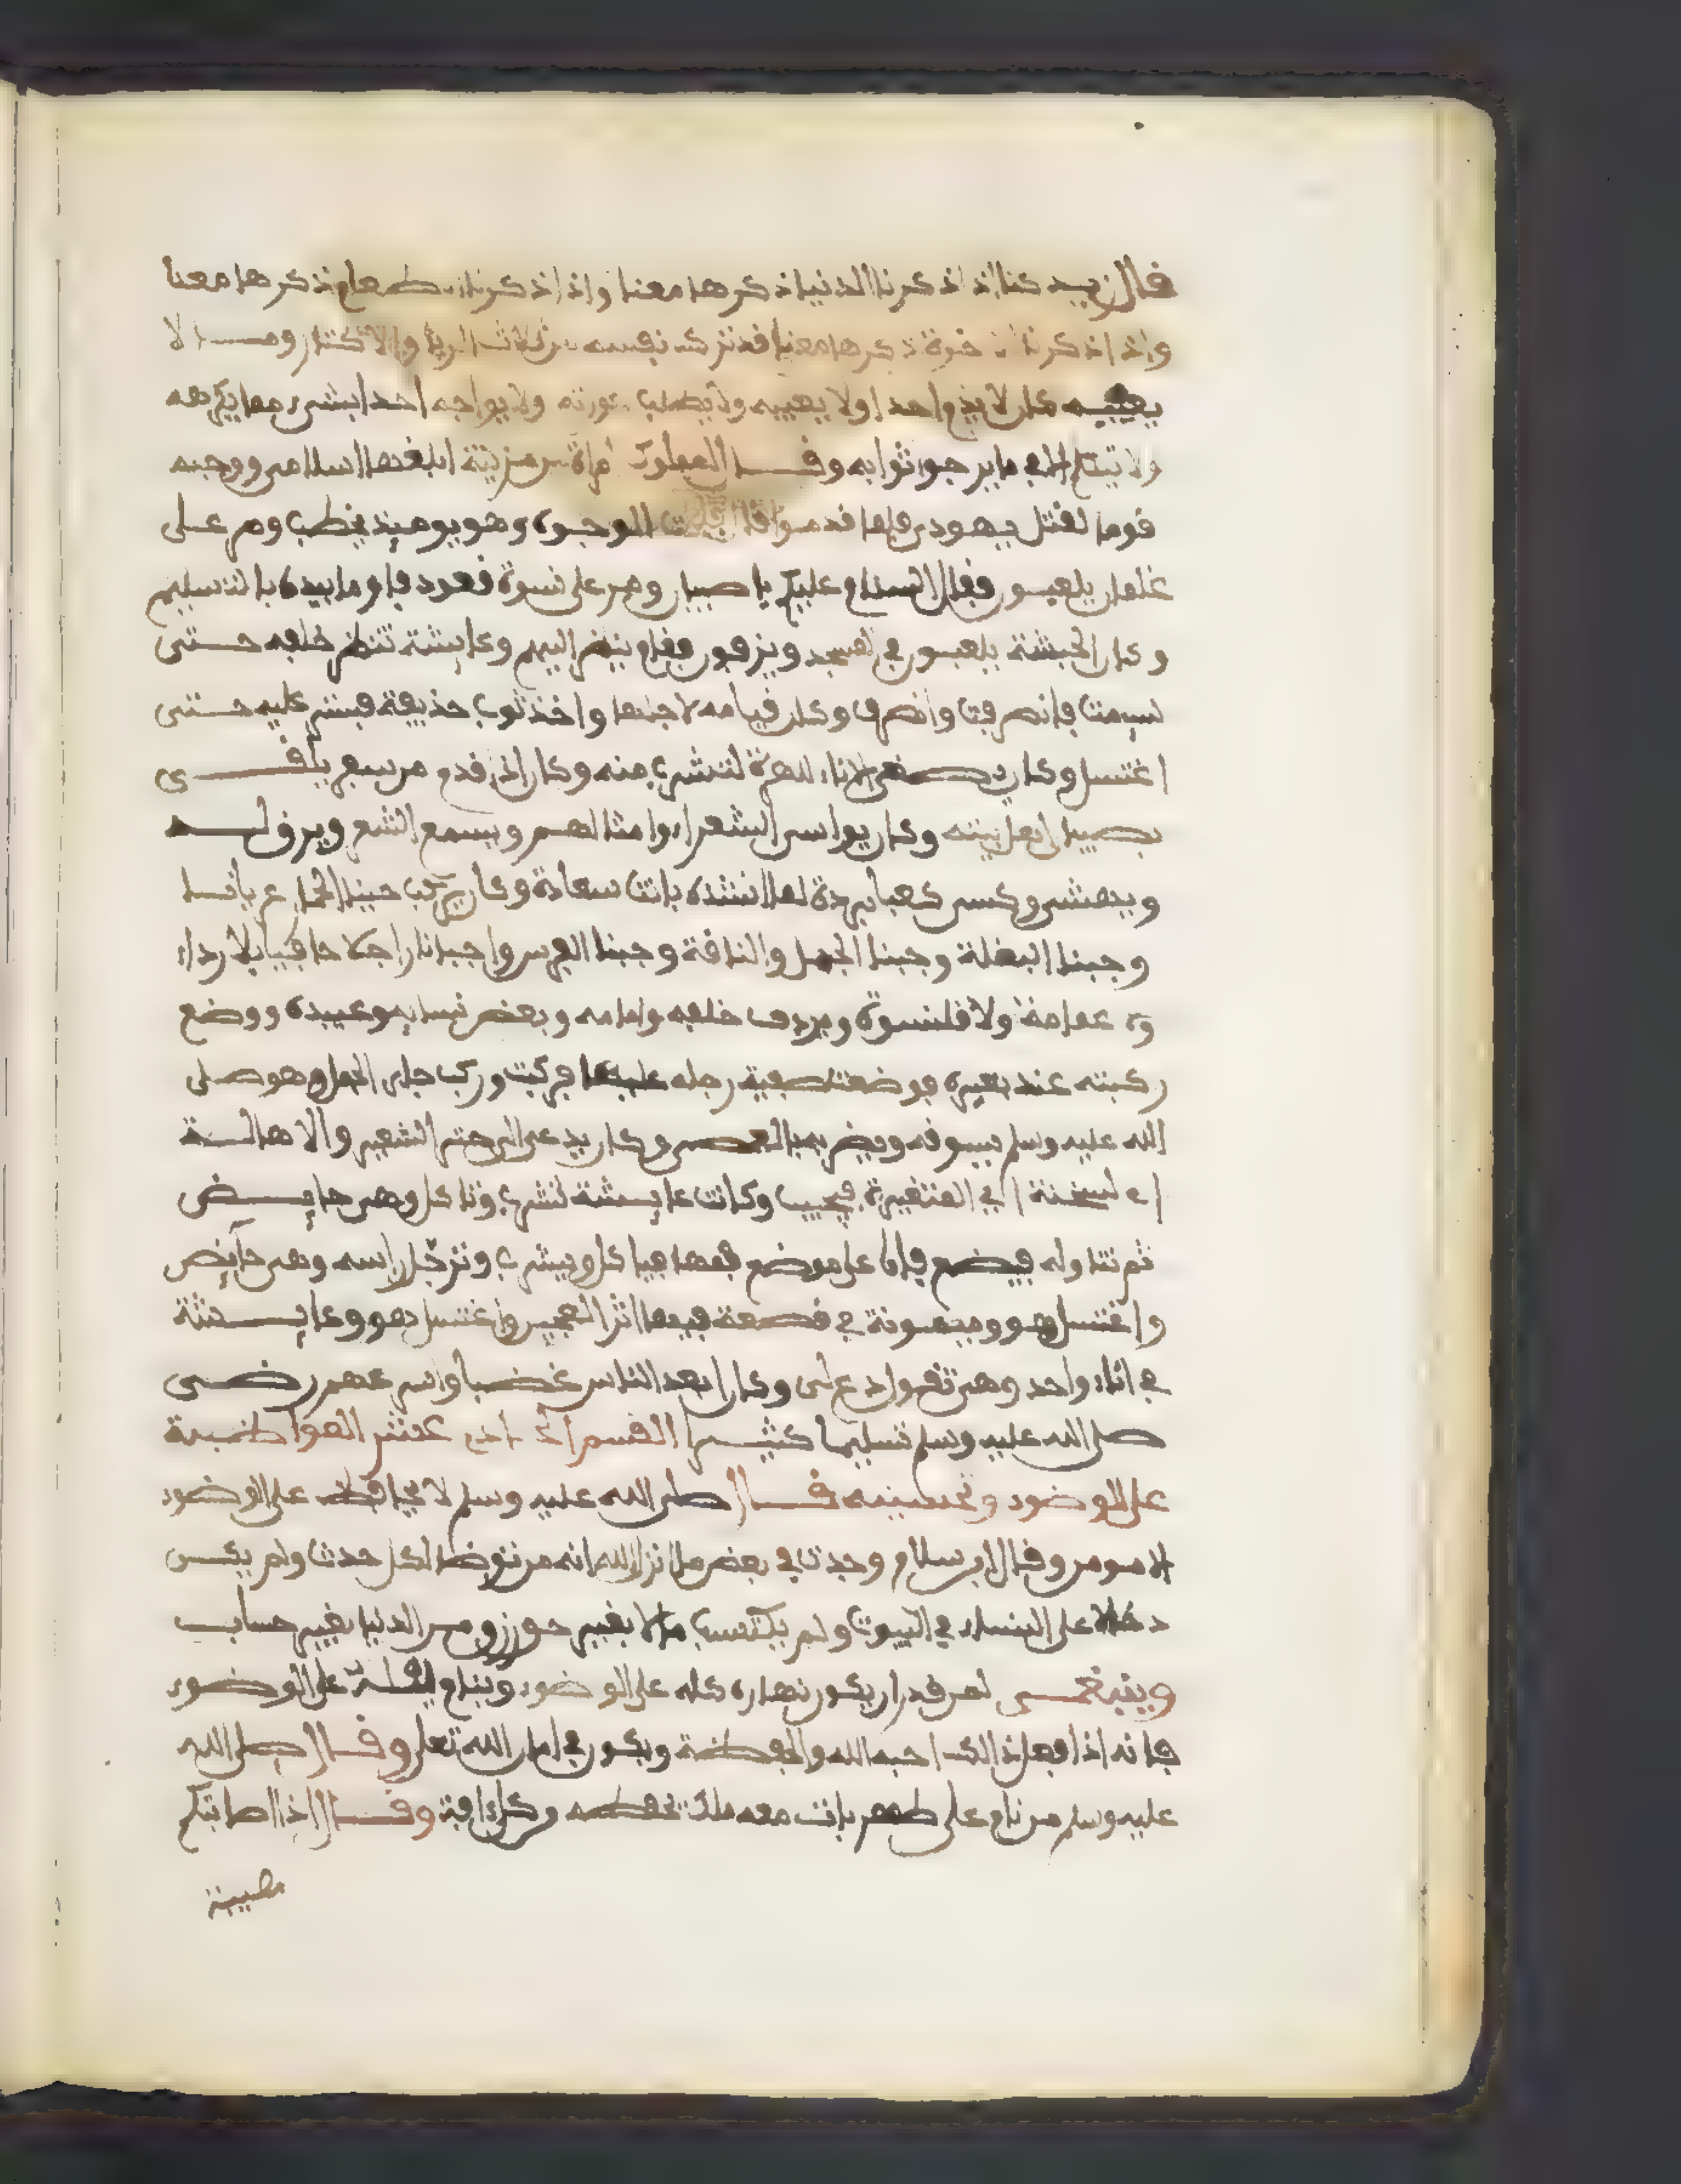 قال زيد كنا اذا ذكرنا الدنيا ذكرها معنا واذا ذكرنا الطعام ذكرها معنا
واذا ذكرنا الاخرة ذكرها معنا قد ترك نفسه من ثلاث الريا والاكثار وما لا
يعنيه كان لا يذم احدا ولا يعيبه ولا يطلب عورته ولا يواجه احدا بشيء مما يكرهه
ولا يتكلم الا في ما يرجو ثوابه وقال امراة من مزينة ابلغها اسلامي ووجه
قوما لقتل يهودي فلما قدموا قال الوجوه وهو يوميذ يخطب ومر على
غلمان يلعبون فقال السلام عليكم يا صبيان ومر على نسوة قعود فاوما بيده بالتسليم
وكان الحبشة يلعبون في المسجد ويزفون فقام ينظر اليهم وعايشة تنظر خلفه حتى
سيمت فانصرفت وانصرف وكان قيامه لاجلها واخذ ثوب حذيفة فستر عليه حتى
اغتسل وكان يصغي الاناء للهرة لتشرب منه وكان اذا قدم من سفر يلقى
بصبيان اهل بيته وكان يواسي الشعراء وامثالهم ويسمع الشعر ويرق له
ويهش وكسى كعبا بردة لما انشده بانت سعادة وكان يركب حينا الحمار عريانا
وحينا البغلة وحينا الجمل والناقة وحينا الفرس واحيانا راجلا حافيا بلا رداء
ولا عمامة ولا قلنسوة ويردف خلفه وامامه وبعض نسايه وعبيده ووضع
ركبته عند بعيره فوضعت صفية رجله عليها فركبت وركب جابر الجمل وهو صلى
الله عليه وسلم يسوقه ويضربه بالعصى وكان يدعى الى خبز الشعير والاهالة
السخنة اي المتغيرة فيجيب وكانت عايشة تشرب وتاكل وهي حايض
ثم تناوله فيضع فاه على موضع فمها فياكل ويشرب وترجل راسه وهي حايض
واغتسل هو وميمونة في قصعة فيها اثر العجين واغتسل هو وعايشة
في اناء واحد وهي تقول دع لى وكان ابعد الناس غضبا واسرعهم رضى
صلى الله عليه وسلم تسليما كثيرا القسم الحادي عشر المواظبة
على الوضوء وتحسينه قال صلى الله عليه وسلم لا يحافظ على الوضوء
الا مومن وقال ابن سلام وجدت في بعض ما انزل الله انه من توضا لكل حدث ولم يكن
دخالا على النساء في البيوت ولم يكتسب مالا بغير حق رزق من الدنيا بغير حساب
وينبغي لمن قدر ان يكون نهاره كله على الوضوء وينام ليله على الوضوء
فانه اذا فعل ذالك احبه الله والحفظة ويكون في امان الله تعلى وقال صلى الله
عليه وسلم من نام على طهر بات معه ملك يحفظه من كل ءافة وقال اذا اصابتكم
مصيبة